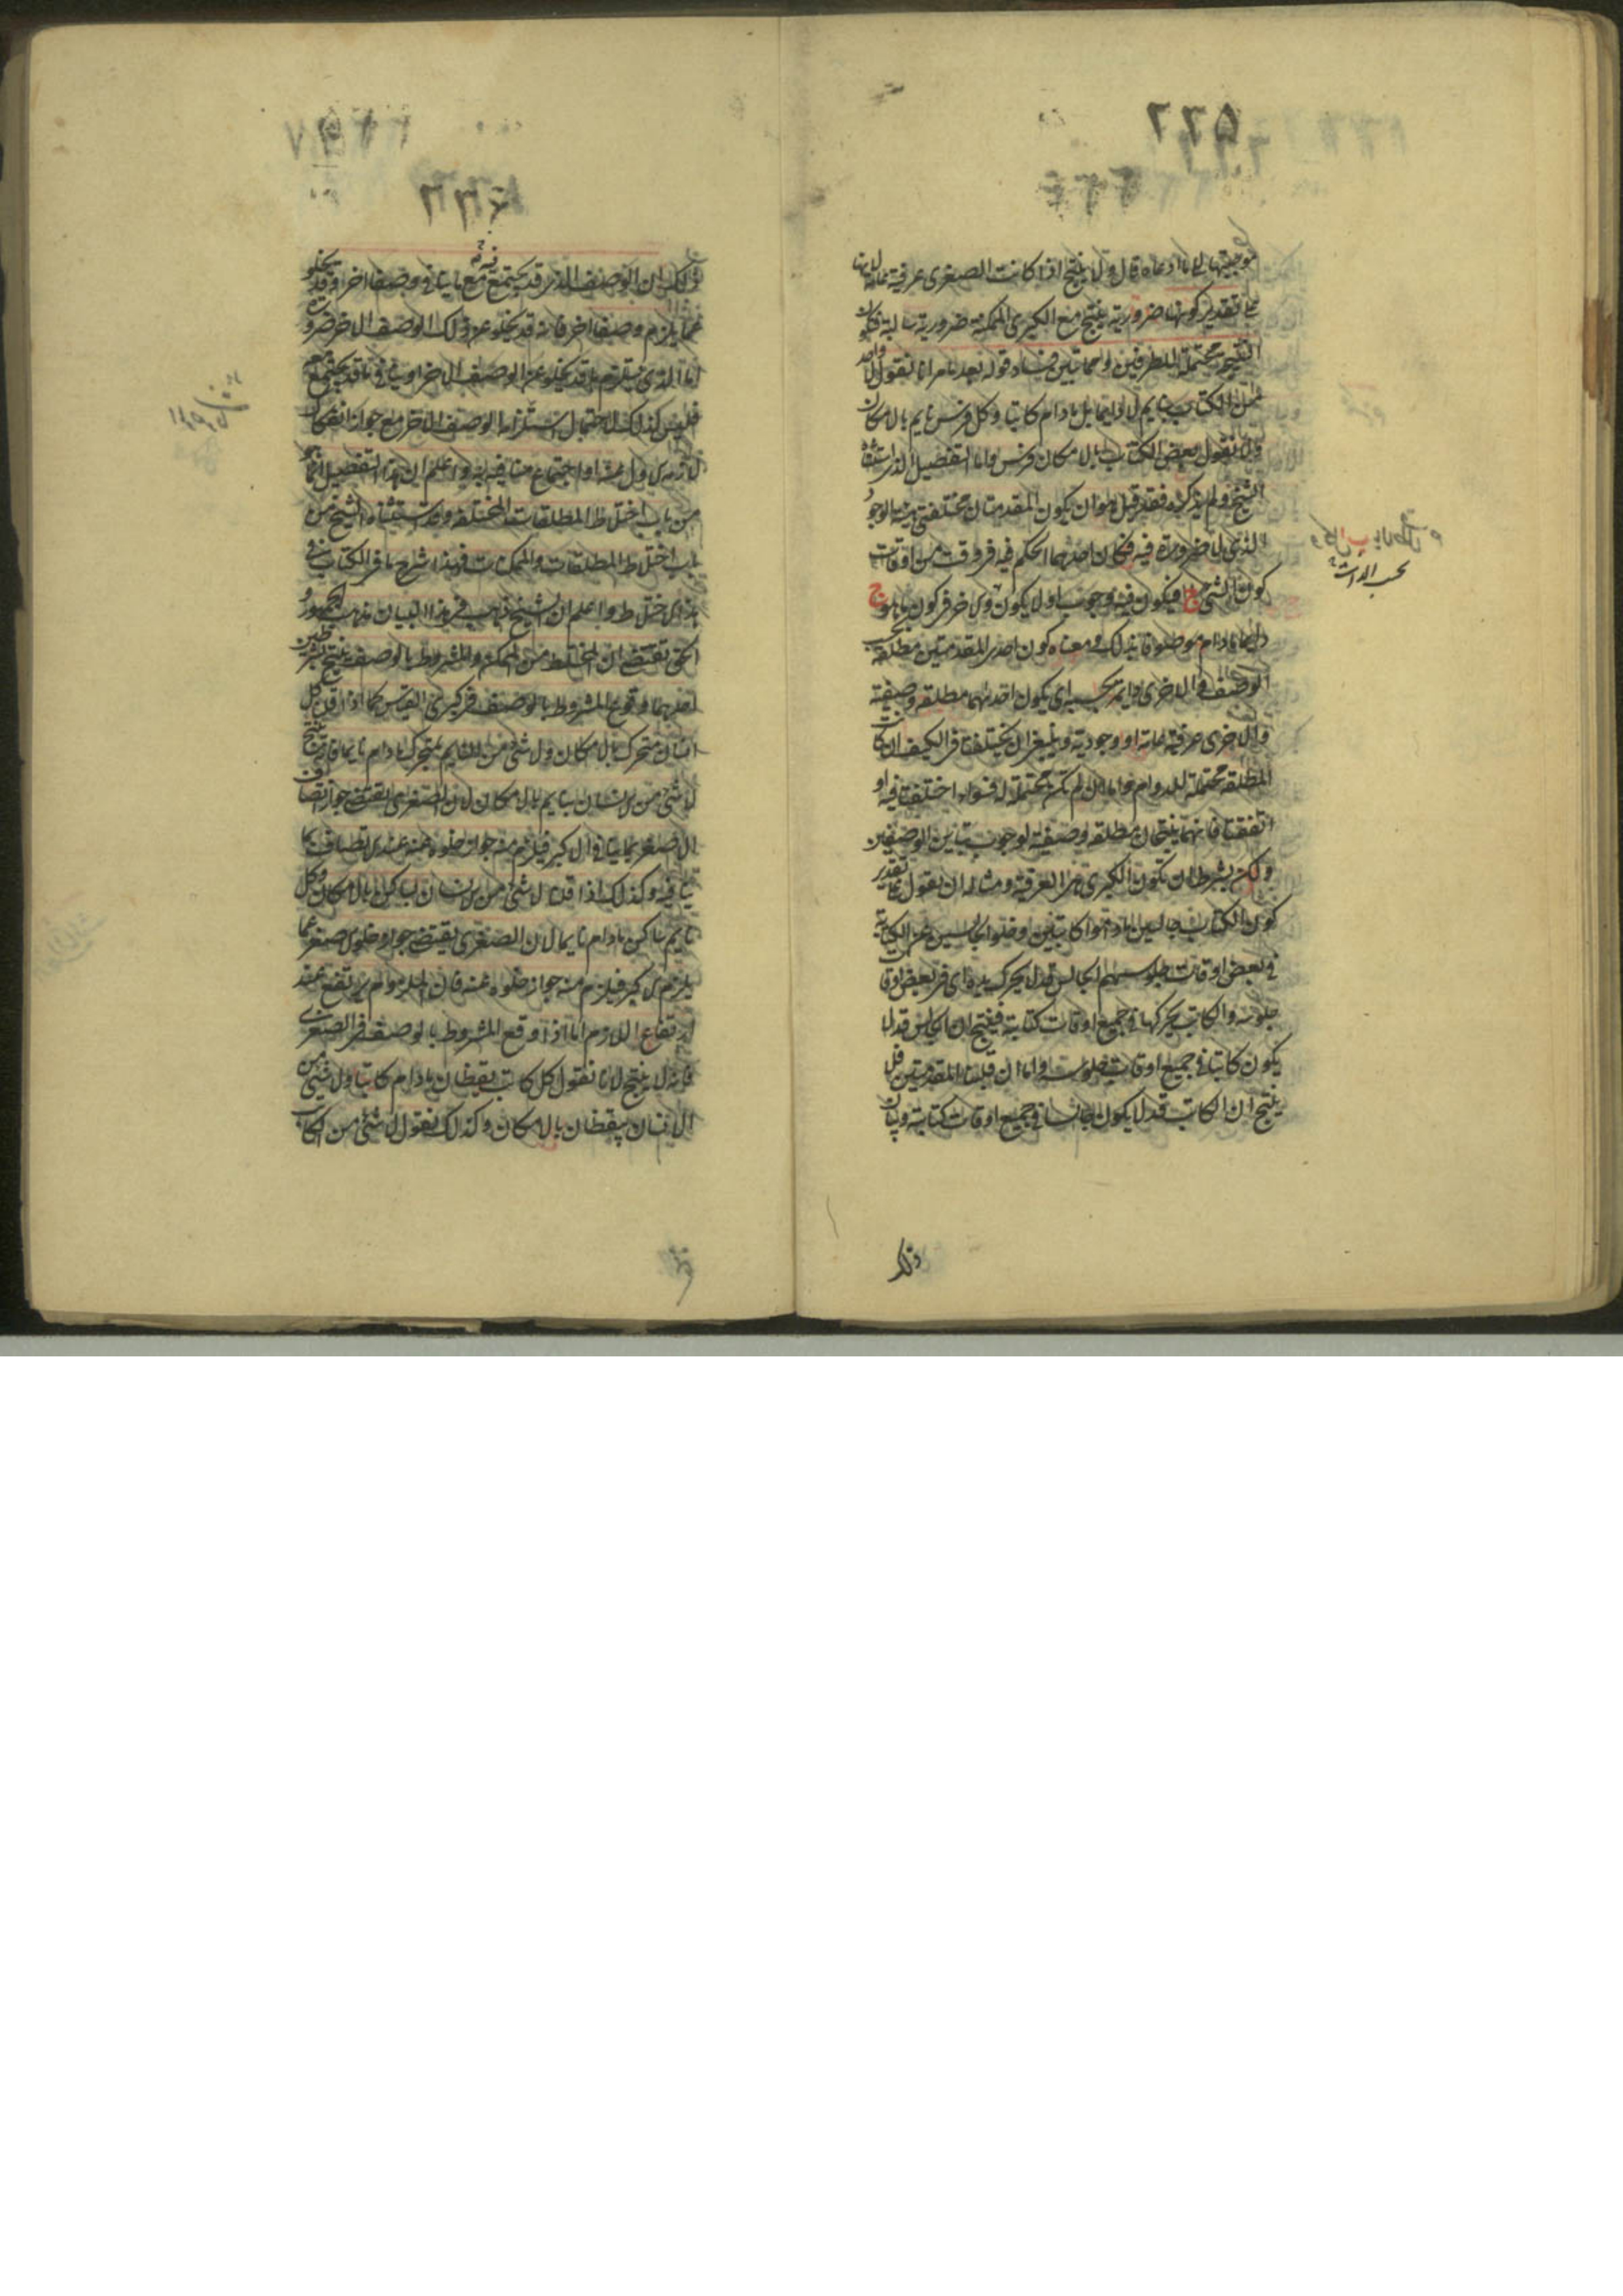 ٥٦٦
موجبتها لما ادعاه قال ولا ينتج اذا كانت الصغرى عرفية عامة لانها
على تقدير كونها ضرورية ينتج مع الكبرى الممكنة ضرورية سالبة فيكون
النتيجة محتملة للطرفين واما تبين فساد قوله بعد ما مر انا نقول لا واحد
من الكتاب بنايم لا دايما بل مادام كاتبا وكل فرس نايم بالامكان
ولا نقول بعض الكتاب بالامكان فرس واما التفصيل الذى استثناه
الشيخ ولم يذكره فقد قيل هو ان يكون المقدمتان مختلفتى الوجود
الذى لا ضرورة فيه فكان احدهما الحكم فيه فى وقت من اوقات
كون الشى ج فيكون فيه وجوب اولا يكون والاخر فى كون ما هو ج
دايما مادام موصوفا بذلك ومعناه كون احدى المقدمتين مطلقة بحسب
الوصف والاخرى دايمة بحسبه اى يكون احدتهما مطلقة وصفية
والاخرى عرفية عامة او وجودية وينبغى ان يختلفا فى الكيف ان كانت
المطلقة محتملة للدوام واما ان لم تكن محتملة له فسواء اختلفتا فيه او
اتفقتا فانهما ينتجان مطلقة وصفية لوجوب تباين الوصفين
ولكن بشرط ان تكون الكبرى هى العرفية ومثاله ان نقول على تقدير
كون الكتاب جالسين ماداموا كاتبين وخلوا الجالسين عن الكتابة
فى بعض اوقات جلوسهم الجالس قد لا يحرك يده اى فى بعض اوقات
جلوسه والكاتب يحركها فى جميع اوقات كتابته فينتج ان الجالس قد لا
يكون كاتبا فى جميع اوقات جلوسه واما ان قلبنا المقدمتين فلا
ينتج ان الكاتب قد لا يكون جالسا فى جميع اوقات كتابته وبيان
بحسب الذات
ذلك
ذلك ان الوصف الذى قد يجتمع مع ما ينافى وصفا اخر وقد يخلو
عما يلزم وصفا اخر فانه قد يخلو عن ذلك الوصف الاخر ضرورة
اما الذى يستلزم ما قد يخلو عنه الوصف الاخر او ينافى ما قد يجتمع معه
فليس كذلك لاحتمال استلزامه الوصف الاخر مع جواز انفكاك
لازم الاول عنه او اجتماع منافيه به واعلم ان هذا التفصيل انما هو
من باب اختلاط المطلقات المختلفة وقد استثناه الشيخ من
باب اختلاط المطلقات والممكنات فهذا شرح ما فى الكتاب فى
هذا الاختلاط واعلم ان الشيخ ذهب فى هذا البيان مذهب الجمهور و
الحق يقتضى ان المختلط من الممكن والمشروط بالوصف ينتج بشرطين
احدهما وقوع المشروط بالوصف فى كبرى القياس كما اذا قلنا كل
انسان متحرك بالامكان ولا شى من النايم بمتحرك مادام نايما فانه ينتج
لا شى من الانسان بنايم بالامكان لان الصغرى يقتضى جواز اتصاف
الاصغر بما ينافى الاكبر فيلزم منه جواز خلوه عنه عند الاتصاف بما
ينافيه وكذلك اذا قلنا لا شى من الانسان بساكن بالامكان وكل
نايم ساكن مادام نايما لان الصغرى يقتضى جواز خلو الاصغر عما
يلزم الاكبر فيلزم منه جواز خلوه عنه فان الملزوم يرتفع عند
ارتفاع اللازم اما اذا وقع المشروط بالوصف فى الصغرى
فانه لا ينتج لانا نقول كل كاتب يقظان مادام كاتبا ولا شى من
الانسان بيقظان بالامكان وكذلك نقول لا شى من الكاتب